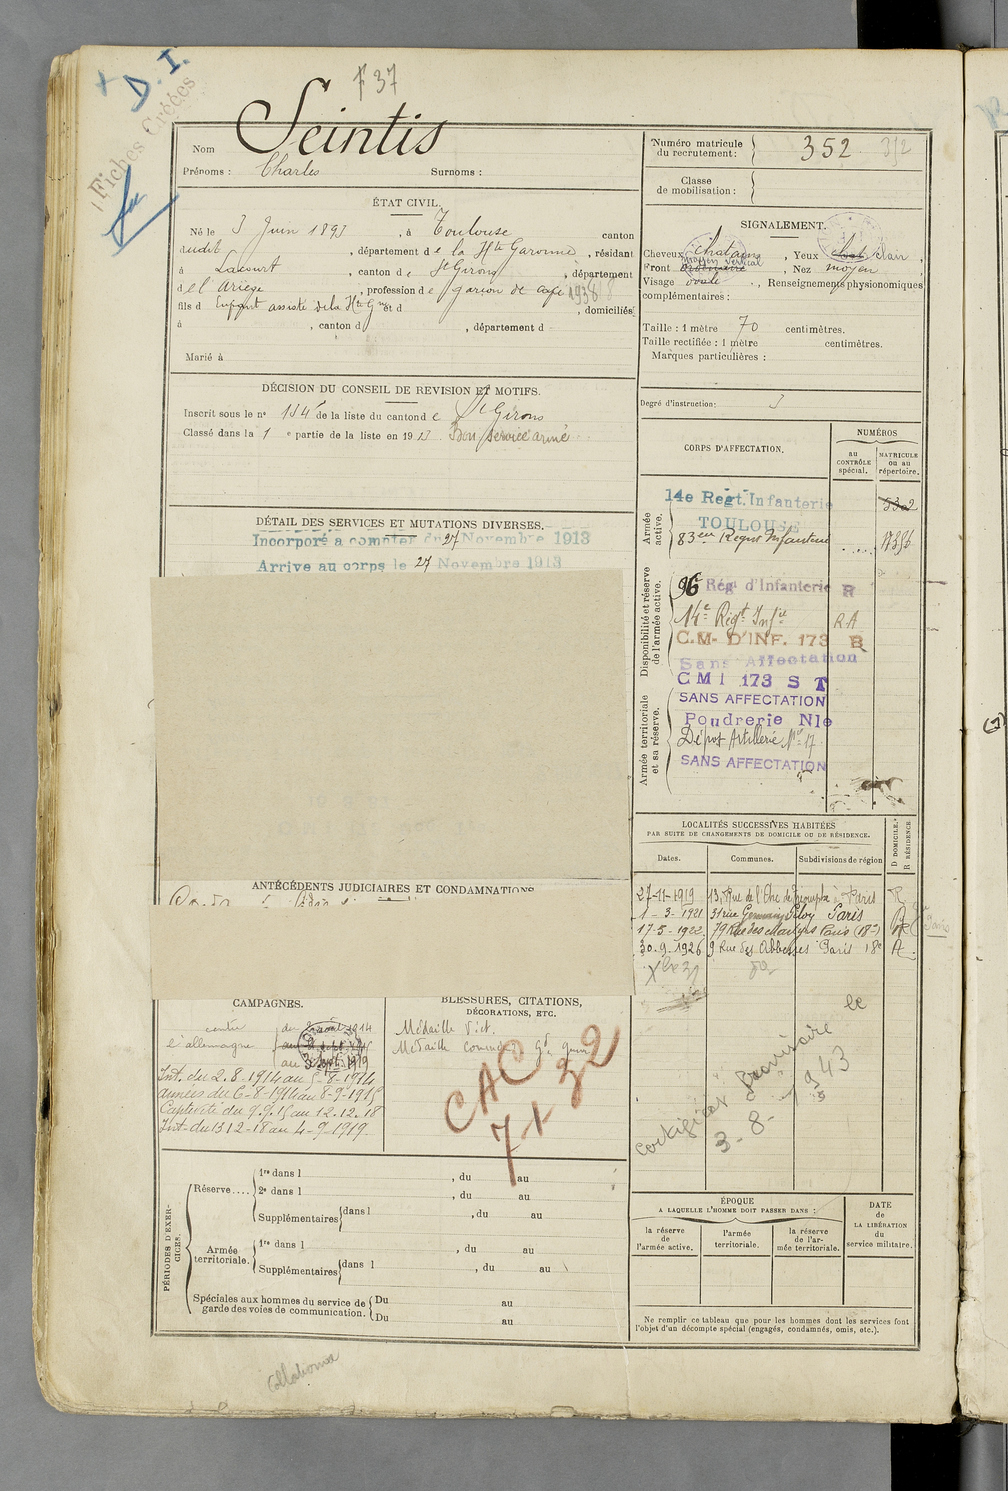 D. I.
F 37
Fiches Créées
Nom Seintis
Prénoms : Charles Surnoms :
Numéro matricule du recrutement : 352
Classe de mobilisation :
ÉTAT CIVIL.
Né le 3 Juin 1893, à Toulouse canton
dudit, département de la Hte Garonne, résidant
à Lacourt, canton de St Girons, département
de l'Ariège, profession de garçon de café 1938
fils d Enfant assisté de la Hte Gne et d , domiciliés
à , canton d , département d
Marié à
SIGNALEMENT.
Cheveux chatains, Yeux clair,
Front moyen vertical, Nez moyen
Visage ovale, Renseignements physionomiques
complémentaires :
Taille : 1 mètre 70 centimètres.
Taille rectifiée : 1 mètre centimètres.
Marques particulières :
Degré d'instruction : 3
DÉCISION DU CONSEIL DE REVISION ET MOTIFS.
Inscrit sous le n° 154 de la liste du canton de St Girons
Classé dans la 1e partie de la liste en 1913. Bon service armé
DÉTAIL DES SERVICES ET MUTATIONS DIVERSES.
Incorporé à compter du 27 Novembre 1913
Arrivé au corps le 27 Novembre 1913
CORPS D'AFFECTATION.
NUMÉROS
AU CONTRÔLE spécial.
MATRICULE ou au répertoire.
Armée active.
14e Regt. Infanterie
TOULOUSE
83eme Regnt Infanterie
Disponibilité et réserve de l'armée active.
96e Régt d'Infanterie R
14e Régt Infie RA
C.M- D'INF. 173 R
Sans Affectation
CMI 173 S T
SANS AFFECTATION
Armée territoriale et sa réserve.
Poudrerie Nle
Dépôt Artillerie No 17
SANS AFFECTATION
LOCALITÉS SUCCESSIVES HABITÉES
PAR SUITE DE CHANGEMENTS DE DOMICILE OU DE RÉSIDENCE.
Dates. Communes. Subdivisions de région
D DOMICILE. R RÉSIDENCE.
27-11-1919 13, Rue de l'Arc de Triomphe à Paris R
1-3-1921 31 rue Paris R
17-5-1922 79 Rue des Martyrs Paris (18e) R
30.9.1926 9 Rue des Abbesses Paris 18e
ANTÉCÉDENTS JUDICIAIRES ET CONDAMNATIONS
CAMPAGNES.
contre l'allemagne du 2 août 1914
Int. du 2.8.1914 au 5-8-1914
armées du 6-8-1914 au 8-9-1915
Captivité du 9.9.15 au 12.12.18
Int. du 13 12-18 au 4-9-1919
BLESSURES, CITATIONS, DÉCORATIONS, ETC.
Médaille Vict.
Médaille commém Gde guerre
CAC 32
71
provisoire
3-8-1943
PÉRIODES D'EXERCICES.
Réserve....
1re dans l , du au
2e dans l , du au
Supplémentaires dans l , du au
Armée territoriale.
1re dans l , du au
Supplémentaires dans l , du au
Spéciales aux hommes du service de garde des voies de communication.
Du au
Du au
ÉPOQUE
A LAQUELLE L'HOMME DOIT PASSER DANS :
la réserve de l'armée active.
l'armée territoriale.
la réserve de l'armée territoriale.
DATE de LA LIBÉRATION du service militaire.
Ne remplir ce tableau que pour les hommes dont les services font
l'objet d'un décompte spécial (engagés, condamnés, omis, etc.).
Collationné